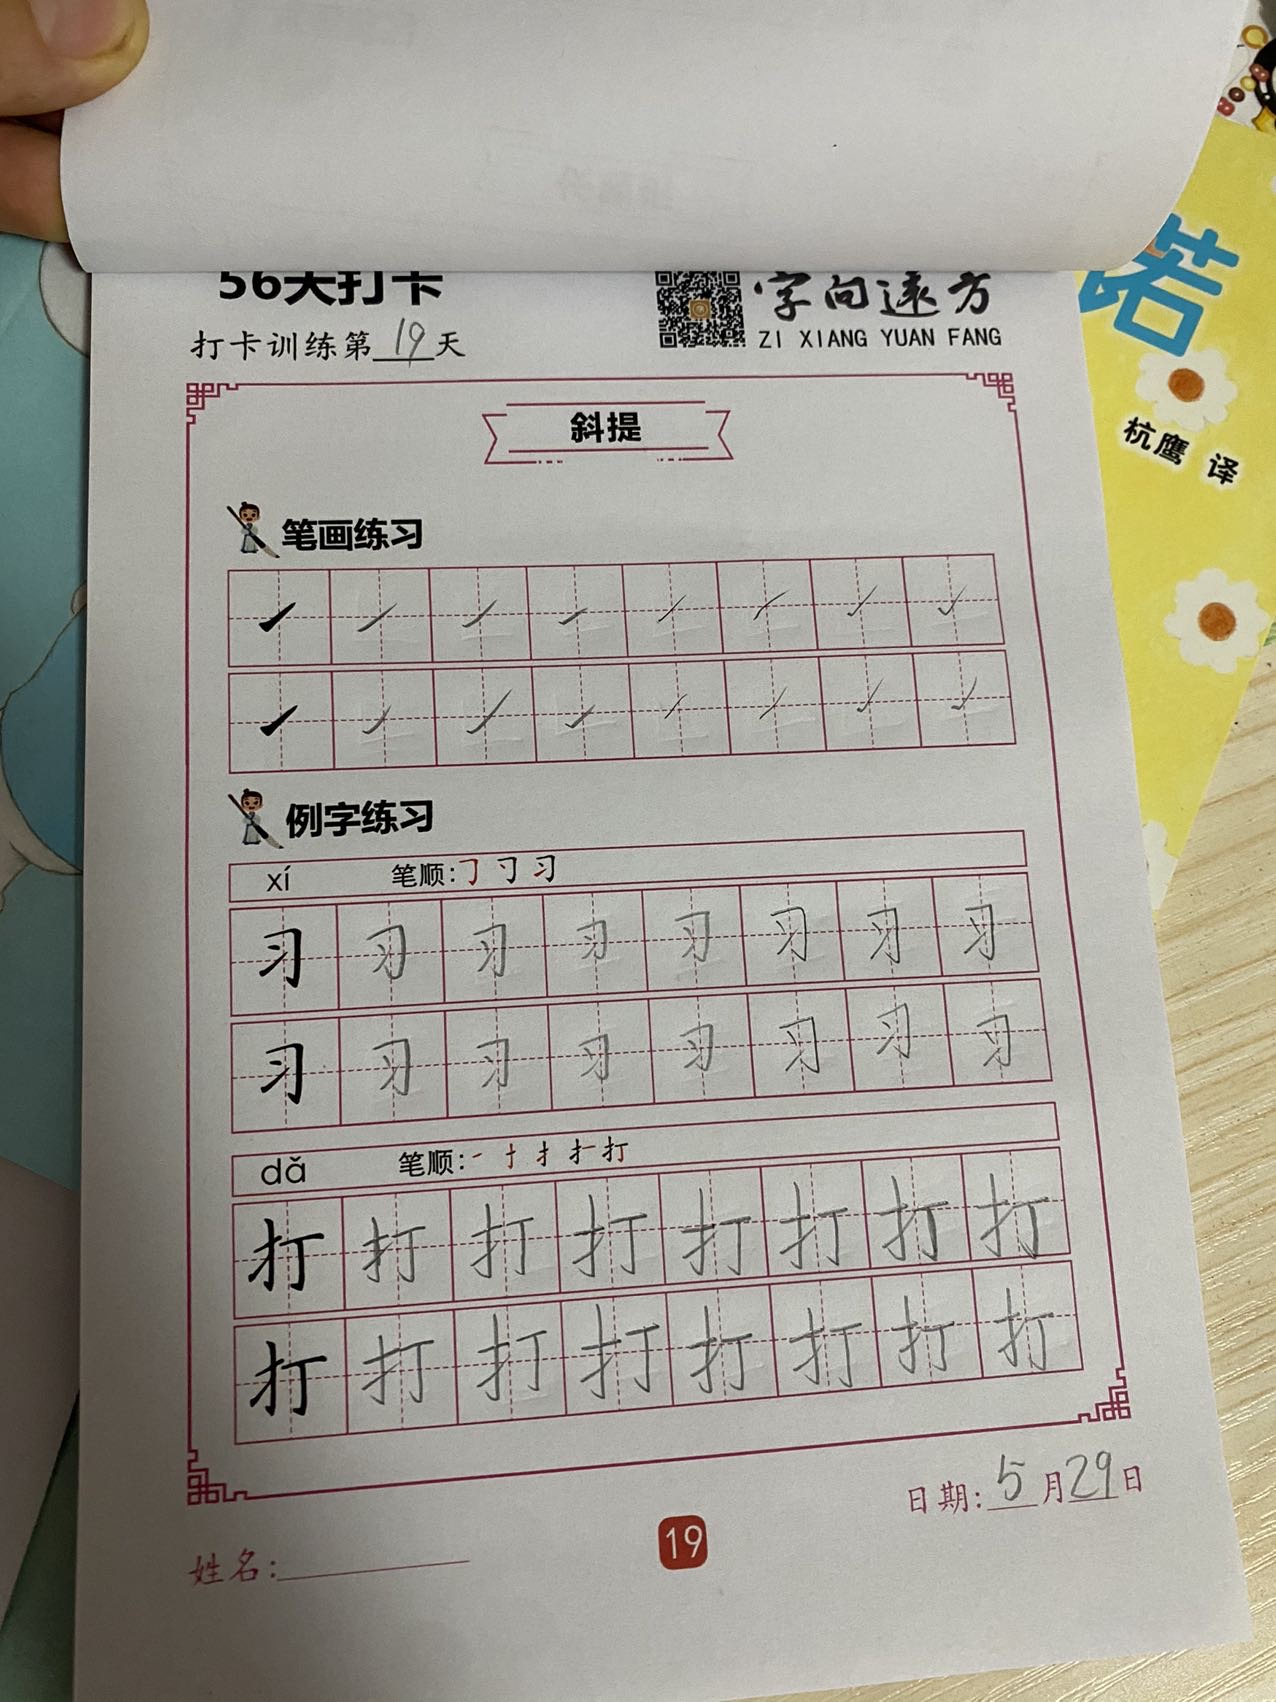 56天打卡
字向远方
ZI XIANG YUAN FANG
打卡训练第19天
诺
杭鹰 译
斜提
笔画练习
例字练习
xí 笔顺:
习 习 习 习 习 习 习 习
习 习 习 习 习 习 习 习
dǎ 笔顺:
打 打 打 打 打 打 打 打
打 打 打 打 打 打 打 打
日期: 5 月 29 日
19
姓名: